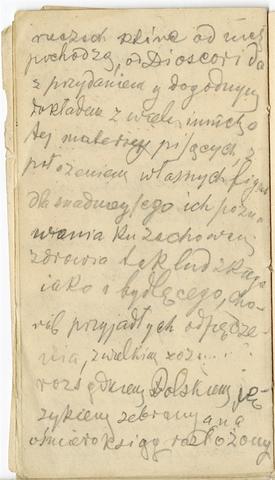 rzeczach które od nich
pochodzą, od Dioscorida
z przydaniem y dogodnym
dokładem z wielu innych o
tej materyey piszących z
położeniem własnych figur
dla snadnieyszego ich pozna
wania ku zachowaniu
zdrowia tak ludzkiego
jako i bydlęcego, cho-
rób przypadłych odpędze-
nia, z wielkim
rozsądkiem Polskiem ję-
zykiem zebrany a na
ośmioro ksiąg rozłożony